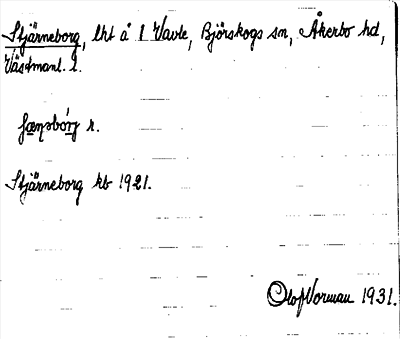 Stjärneborg, lht å 1 Vavle, Björskogs sn, Åkerbo hd,
Västmanl. l.
r.
Stjärneborg kb 1921.
Olof Vorman 1931.